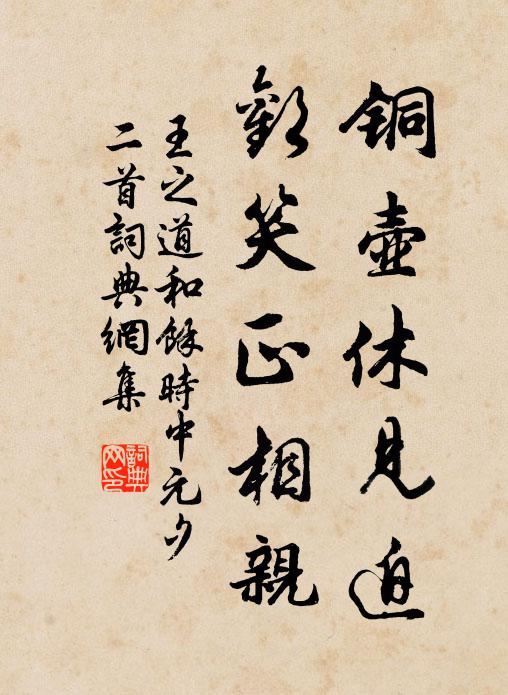 銅壺休見迫
歡笑正相親
王之道和餘時中元夕
二首詞典網集
詞典网印